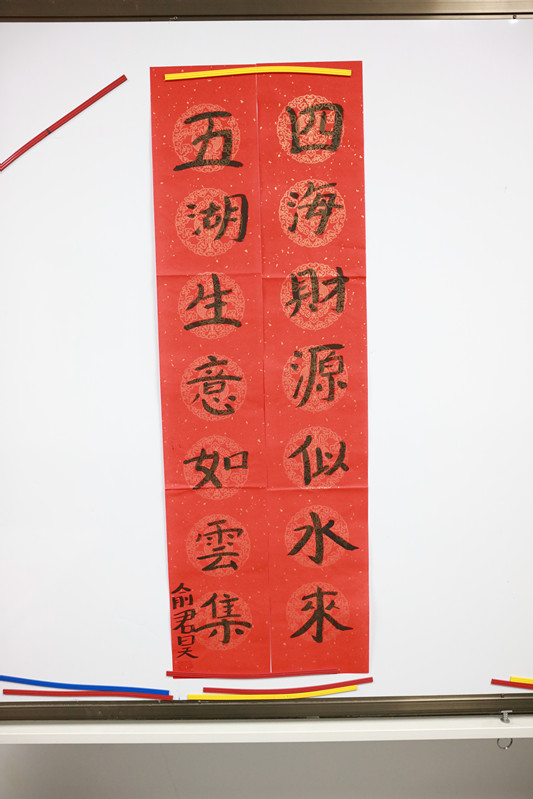 四海財源似水來
五湖生意如雲集
俞君昊